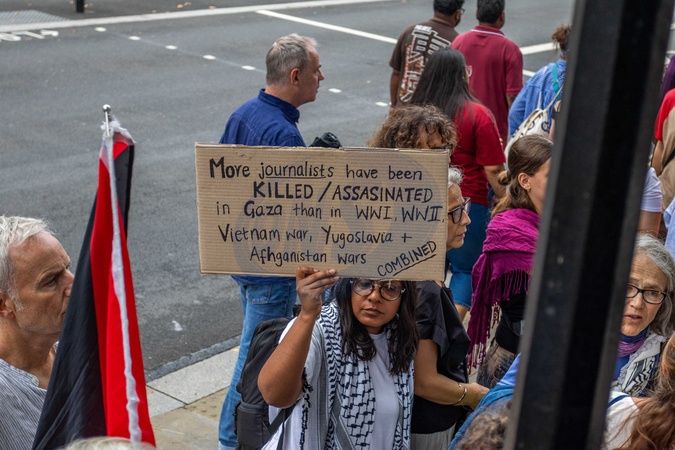 More journalists have been
KILLED/ASSASINATED
in Gaza than in WWI, WWII,
Vietnam war, Yugoslavia +
Afhganistan wars COMBINED